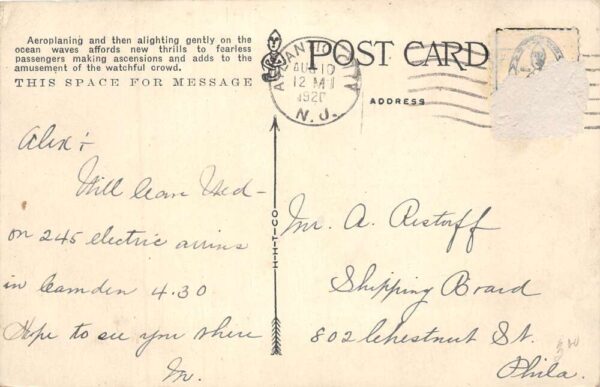 Aeroplaning and then alighting gently on the
ocean waves affords new thrills to fearless
passengers making ascensions and adds to the
amusement of the watchful crowd.
THIS SPACE FOR MESSAGE
POST CARD
ADDRESS
ATLANTIC
AUG 10
12 M
1920
N.J.
H-T-CO
Alex:
Will leave Wed-
on 245 electric arrives
in Camden 4.30
Hope to see you there
M.
Mr. A. Restorff
Shipping Board
802 Chestnut St.
Phila.